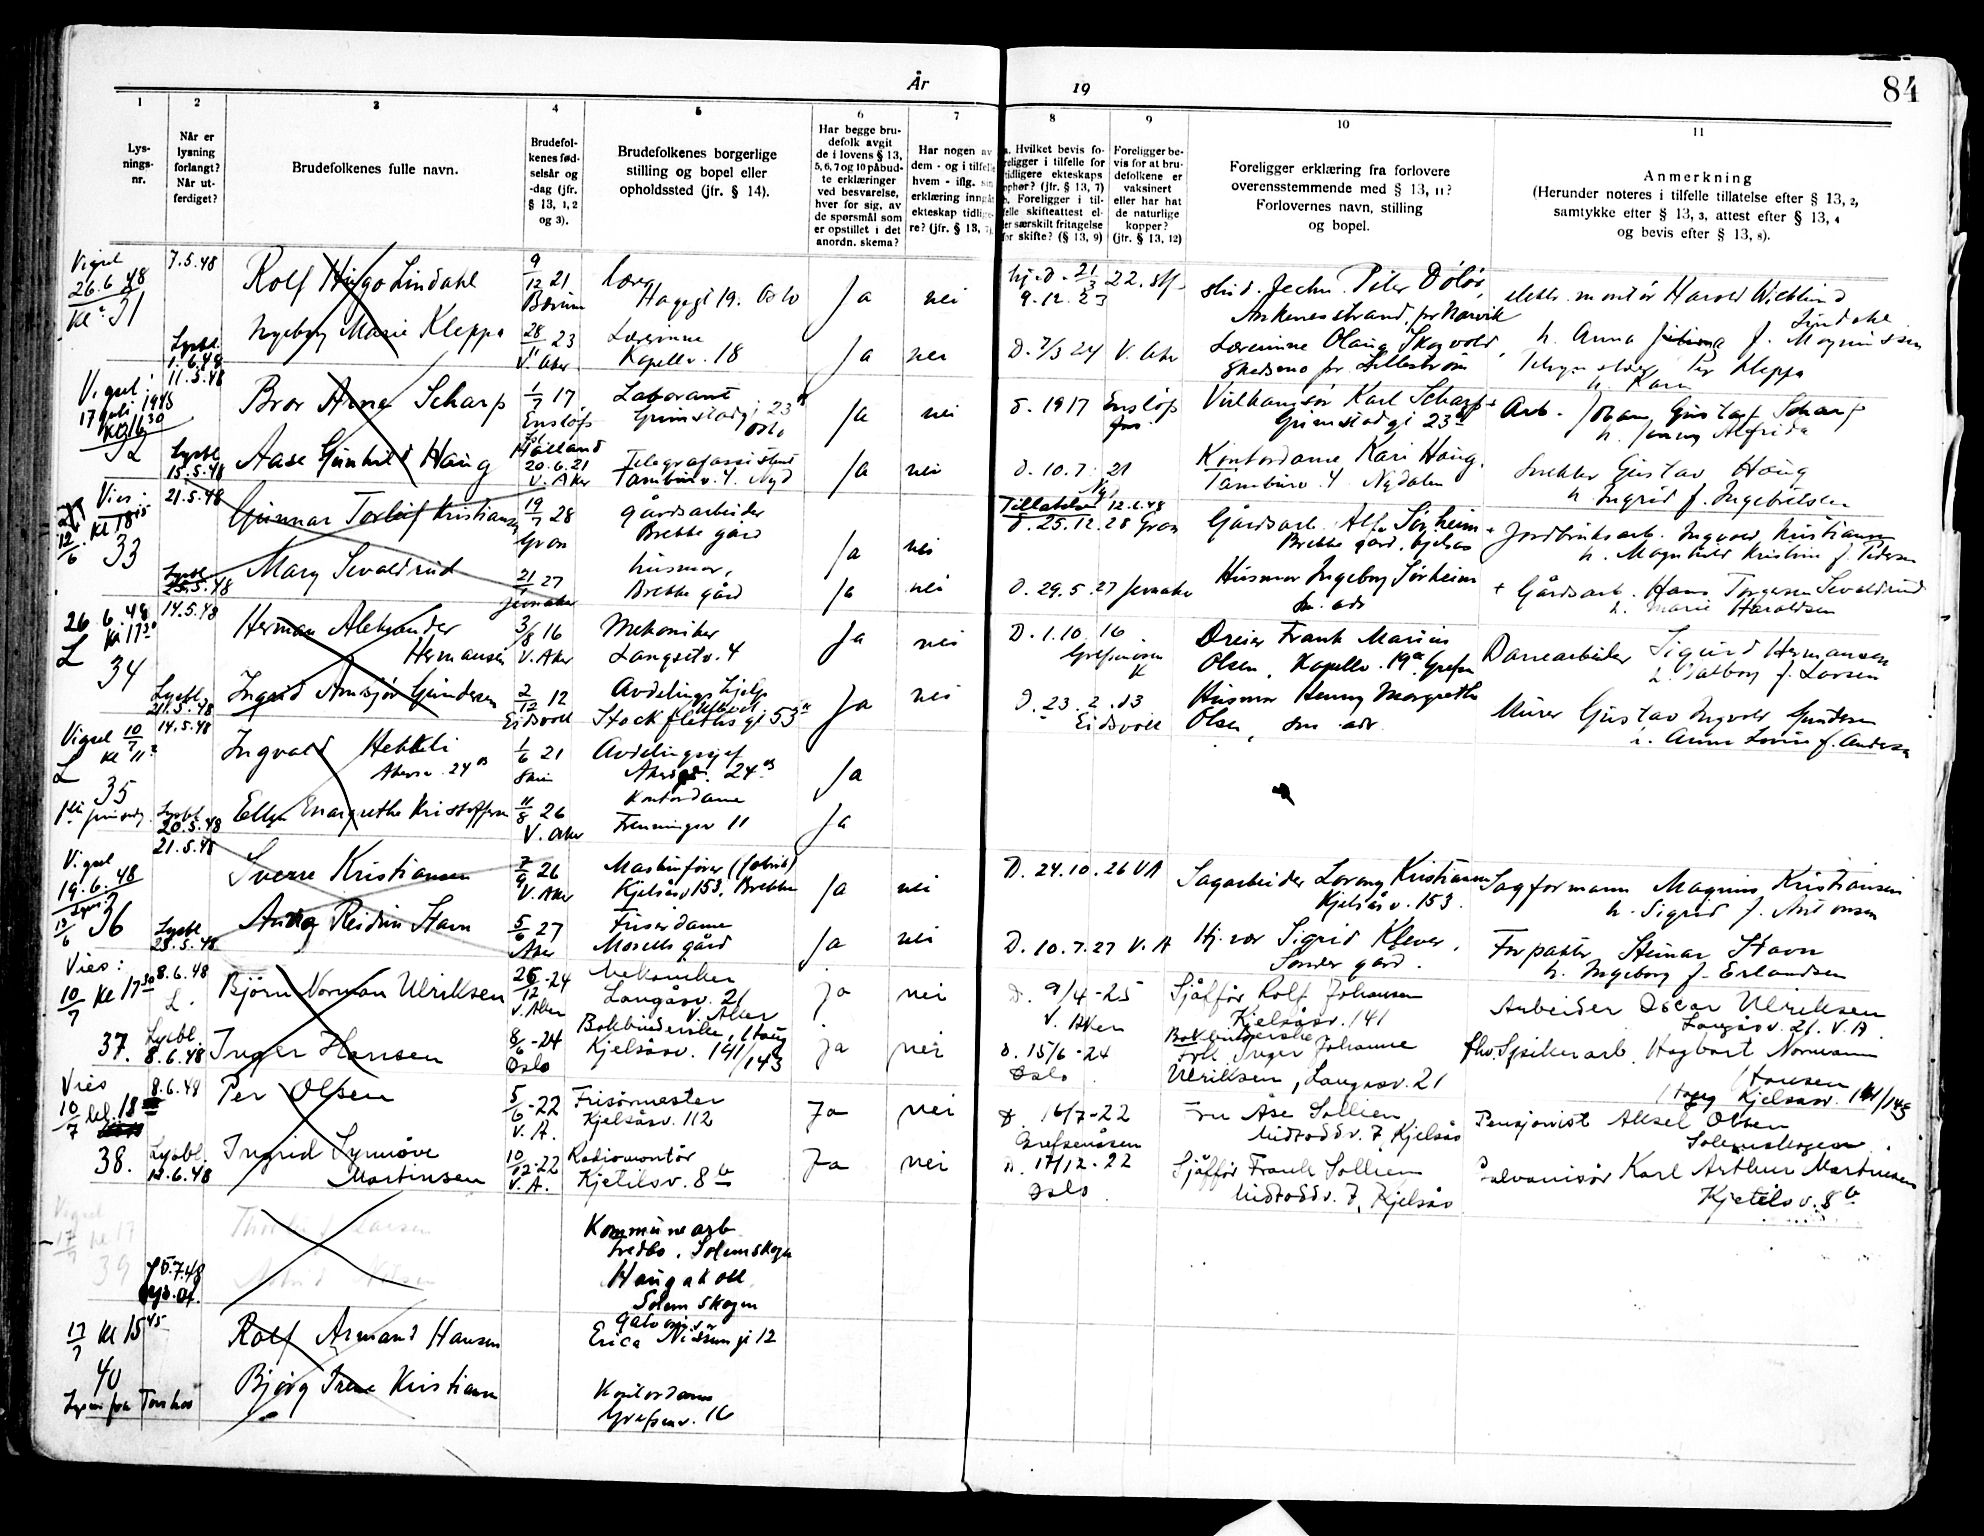 84
År
19
1
2
3
4
5
6
7
8
9
10
11
Lys-
nings-
nr.
Når er
lysning
forlangt?
Når ut-
ferdiget?
Brudefolkenes fulle navn.
Brudefol-
kenes fød-
selsår og
-dag (jfr.
§ 13, 1, 2
og 3).
Brudefolkenes borgerlige
stilling og bopel eller
opholdssted (jfr. § 14).
Har begge bru-
defolk avgit
de i lovens § 13,
5, 6, 7 og 10 påbud-
te erklæringer
ved besvarelse,
hver for sig, av
de spørsmål som
er opstillet i det
anordn. skema?
Har nogen av
dem - og i tilfelle
hvem - iflg. sin
erklæring inngått
ekteskap tidlige-
re? (jfr. § 13, 7).
a. Hvilket bevis fo-
religger i tilfelle for
tidligere ekteskaps
ophør? (jfr. § 13, 7)
b. Foreligger i til-
felle skifteattest el-
ler særskilt fritagelse
for skifte? (§ 13, 9)
Foreligger be-
vis for at bru-
defolkene er
vaksinert
eller har hat
de naturlige
kopper?
(jfr. § 13, 12)
Foreligger erklæring fra forlovere
overensstemmende med § 13, 11?
Forlovernes navn, stilling
og bopel.
Anmerkning
(Herunder noteres i tilfelle tillatelse efter § 13, 2,
samtykke efter § 13, 3, attest efter § 13, 4
og bevis efter § 13, 8).
Vigsel
26.6.48
31
7.5.48
Rolf Hugo Lindahl
9/12 21
Bærum
Hagegt 19. Oslo
Ja
nei
9.12.23
Ankenesstrand pr Narvik
elektr. montør Harald
Lindahl
Lysbl.
1.6.48
Ingeborg Marie Kleppa
28/11 23
V. Aker
Lærerinne
Kapellv. 18
Ja
nei
D. 7/3 24
V. Aker
Lærerinne Olaug Skogvold,
Skedsmo pr Lillestrøm
h. Anna f. Magnussen
Per Kleppa
h. Kari
Vigsel
17 juli 1948
kl 16 30
32
11.5.48
Bror Arne Scharp
1/7 17
Enslöf
Halland
Laborant
Grimstadgt 23
Oslo
Ja
nei
F. 1917
Enslöf
Karl Scharp
Grimstadgt 23
Arb. Johan Gustaf Scharp
h. Jenny Alfrida
Lysbl
15.5.48
Aase Gunhild Haug
20.6.21
V. Aker
Telegrafassistent
Tambürv. 4. Nyd
Ja
nei
D. 10.7.21
Kontordame Kari Haug.
Tambürv. 4 Nydalen
Snekker Gustav Haug
h. Ingrid f. Ingebretsen
Vies:
Kl 18
12/6
33
21.5.48
Gunnar Torleif Kristiansen
19/7 28
Gran
gårdsarbeider
Brekke gård
Ja
nei
Tillatelse 12.6.48
F. 25.12.28 Gran
Gårdsarb. Alf Sørheim
Brekke gård, Kjelsås
Jordbruksarb. Ingvald Kristiansen
h. Magnhild Kristine f. Pedersen
Lysbl
25.5.48
Mary Sevaldrud
21/5 27
Jevnaker
husmor,
Brekke gård
Ja
nei
D. 29.5.27 Jevnaker
Husmor Ingeborg Sørheim
sm. adr
Gårdsarb. Hans Torgersen Sevaldrud
h. Marie Haraldsen
26.6.48
Kl 17 30
L
34
14.5.48
Herman Aleksander
Hermansen
3/8 16
V. Aker
Mekaniker
Langsetv. 4
Ja
nei
D. 1.10.16
Grefsenåsen
K
Dreier Frank Marius
Olsen, Kapellv. 19a Grefsen
Sigurd Hermansen
h. Valborg f. Larsen
Lysbl.
21.5.48
Ingrid Gundersen
2/12 12
Eidsvoll
Avdelingshjelp
Stockfleths gt 53
Ja
nei
D. 23.2.13
Eidsvoll
Husmor Henny Margrethe
Olsen, sm adr
Murer Gustav Ingvald Gundersen
h. Anna Lovise f. Andersen
Vigsel 10/7
kl 11
L
35
14.5.48
Ingvald Hekkli
1/6 21
Skien
Avdelingssjef
Akersv. 24
Ja
Lysbl
20.5.48
Ellen Margrethe Kristoffersen
11/8 26
V. Aker
Kontordame
Frenningsv 11
Ja
Vigsel
19.6.48
13/6
36
21.5.48
Sverre Kristiansen
7/9 26
V. Aker
Maskinfører (fabrik)
Kjelsåsv 153, Brekke
Ja
nei
D. 24.10.26 VA
Sagarbeider Lorang Kristiansen
Kjelsåsv. 153.
Sagformann Magnus Kristiansen
h. Sigrid f. Antonsen
Lysbl
28.5.48
Reidun Stavn
5/6 27
Aker
Friserdame
Mosells gård
Ja
nei
D. 10.7.27 V. A
Hj.vær Sigrid Klever.
Sønder gård.
Forpakter Steinar Stavn
h. Ingeborg f. Erlandsen
Vies:
10/7 kl 17 30
37.
8.6.48
L.
Bjørn Norman Ulriksen
26/12-24
V. Aker
Mekaniker
Langåsv. 21
V. Aker
ja
nei
D. 9/4-25
V. Aker
Sjåfför Rolf Johansen
Kjelsåsv. 141
Arbeider Oscar Ulriksen
Langåsv. 21. V. A.
Lysbl.
8.6.48
Inger Hansen
8/6-24
Oslo
Bokbinderske, Haug
Kjelsåsv. 141/143
ja
nei
D. 15/6-24
Oslo
Bokbinderske
frk Inger Johanne
Ulriksen, Langåsv. 21
fhv. Spikerarb. Hagbart Normann
Hansen
Haug Kjelsåsv. 141/143
Vies
10/7 kl. 18
38.
8.6.48
Per Olsen
5/6-22
V. A.
Frisørmester
Kjelsåsv. 112
Ja
nei
D. 16/7-22
Grefsenåsen
Fru Åse Sollien
Midtoddv. 7 Kjelsås
Pensjonist Aksel Olsen
Solemskogen
Lysbl.
12.6.48
Ingrid Synnöve
Martinsen
10/12-22
V. A.
Radiomontør
Kjetilsv. 8 b
Ja
nei
D. 17/12-22
Oslo
Sjåfför Frank Sollien
Midtoddv. 7, Kjelsås
Galvanisør Karl Arthur Martinsen
Kjetilsv. 8 b
Vigsel
17/7 kl 17
39
7.48
Kommunearb
Solemskogen
Haugakoll
Solemskogen
17/7 Kl 15 45
40
Rolf Armand Hansen
Erica Nissens gt 12
Bjørg Irene Kristiansen
Kontordame
Grefsenv. 16
Lysn. fra Torshov